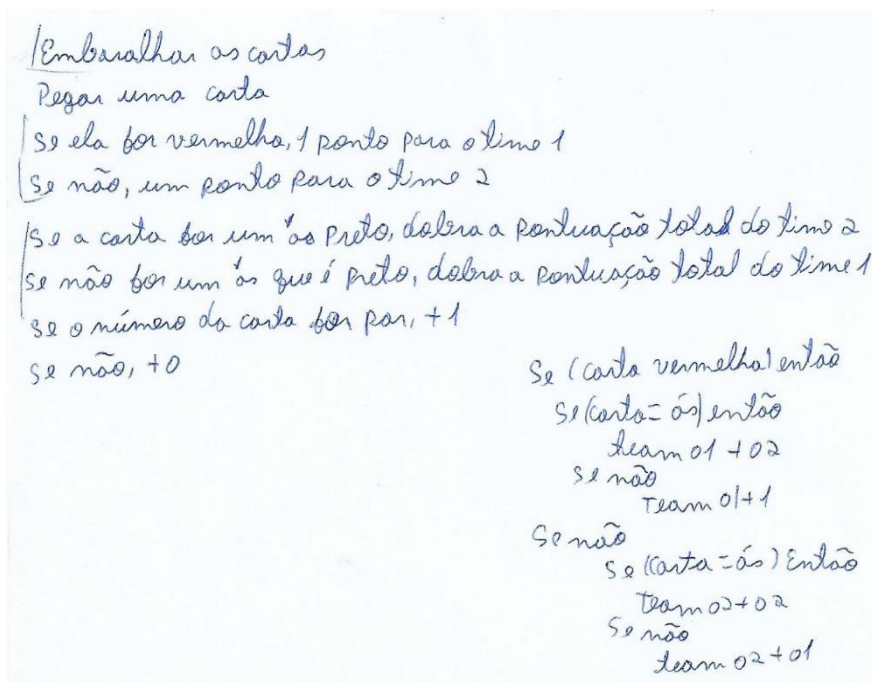 Embaralhar as cartas
Pegar uma carta
Se ela for vermelha, 1 ponto para o time 1
Se não, um ponto para o time 2
Se a carta for um ás Preto, dobra a pontuação total do time 2
Se não for um ás que é preto, dobra a pontuação total do time 1
Se o número da carta for par, +1
Se não, +0
Se (carta vermelha) então
Se (carta = ás) então
team 01 + 02
Se não
Team 01+1
Se não
Se (Carta = ás) Então
Team 02+02
Se não
team 02 + 01